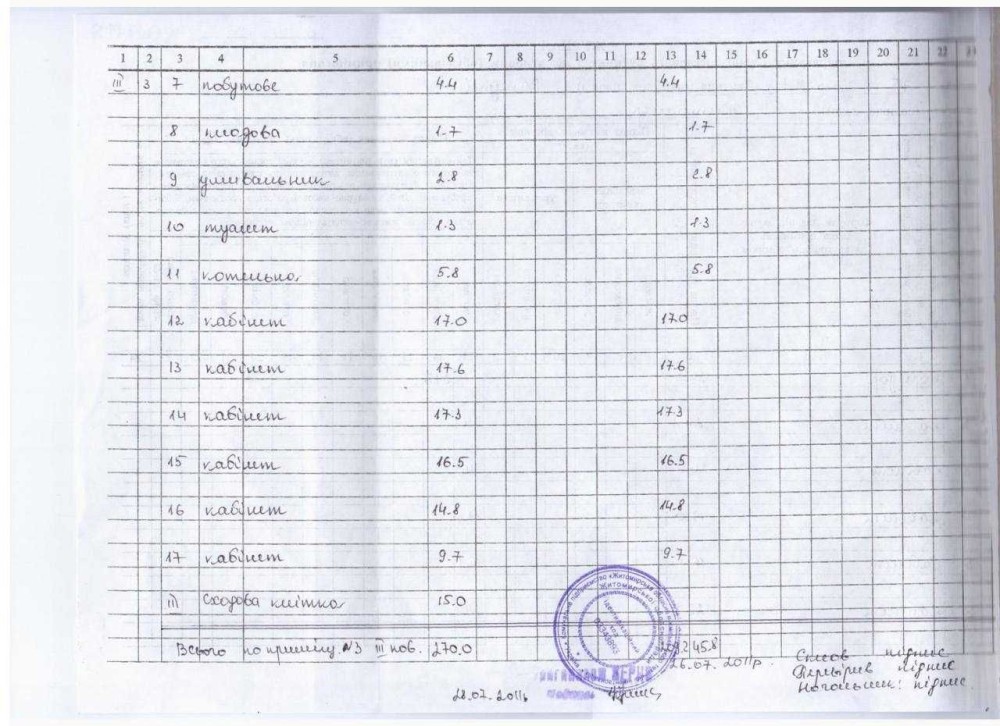 1 2 3 4 5 6 7 8 9 10 11 12 13 14 15 16 17 18 19 20 21 22
III 3 7 побутове 4.4 4.4
8 кладова 1.7 1.7
9 умивальник 2.8 2.8
10 туалет 1.3 1.3
11 котельна 5.8 5.8
12 кабінет 17.0 17.0
13 кабінет 17.6 17.6
14 кабінет 17.3 17.3
15 кабінет 16.5 16.5
16 кабінет 14.8 14.8
17 кабінет 9.7 9.7
III Сходова клітка 15.0
Всього по приміщ. №3 III пов. 270.0 45.8
26.07.2011р.
підпис
Перевірив підпис
Начальник: підпис
28.07.2011р